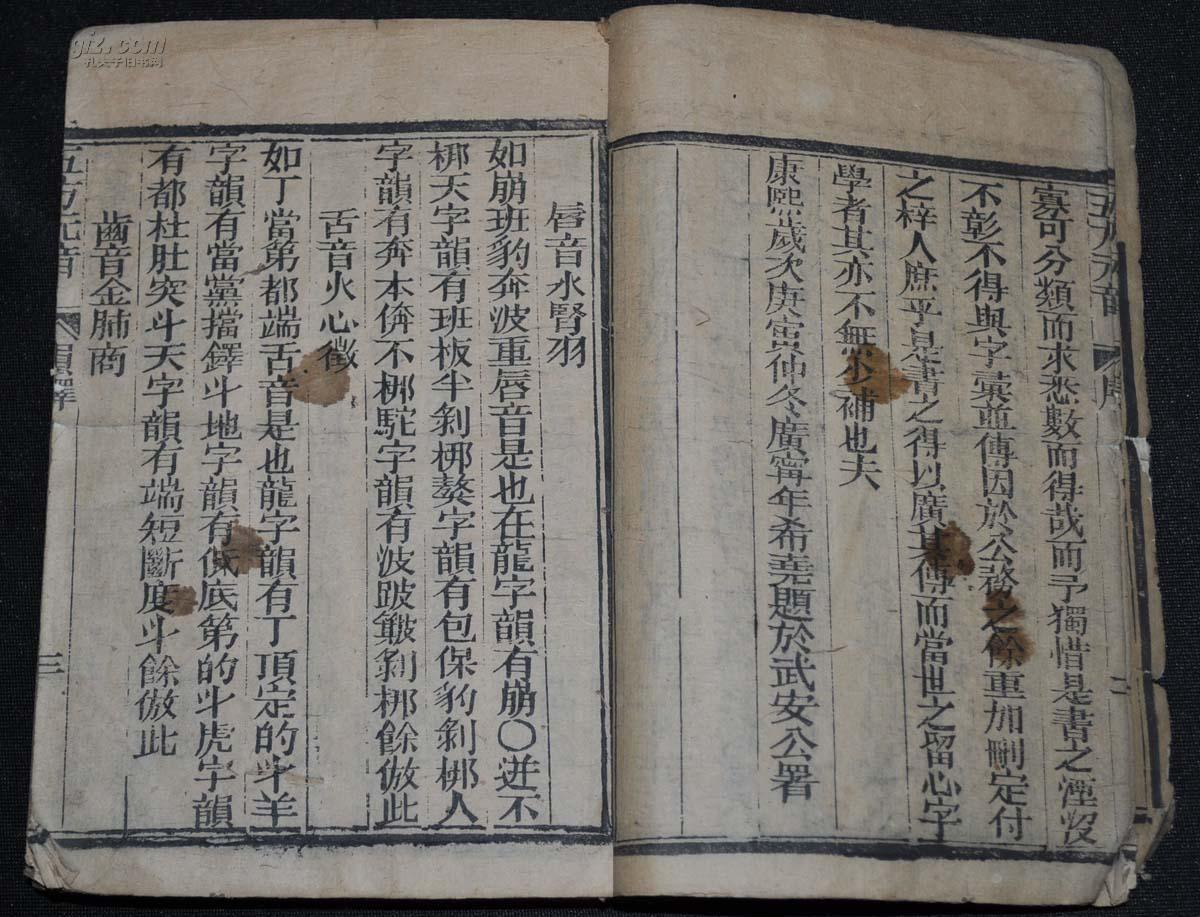 五方元音 序 二
寡可分類而求悉數而得哉而予獨惜是書之湮沒
不彰不得與字彙並傳因於公務之餘重加刪定付
之梓人庶乎是書之得以廣其傳而當世之留心字
學者其亦不無少補也夫
康熙歲次庚寅仲冬廣甯年希堯題於武安公署
唇音水腎羽
如崩班豹奔波重唇音是也在龍字韻有崩〇迸不
梆天字韻有班板半剝梆獒字韻有包保豹剝梆人
字韻有奔本倴不梆駝字韻有波跛簸剝梆餘倣此
舌音火心徵
如丁當第都端舌音是也龍字韻有丁頂定的斗羊
字韻有當黨擋鐸斗地字韻有低底第的斗虎字韻
有都杜肚突斗天字韻有端短斷度斗餘倣此
齒音金肺商
五方元音 韻釋 三
giz.com
孔夫子旧书网